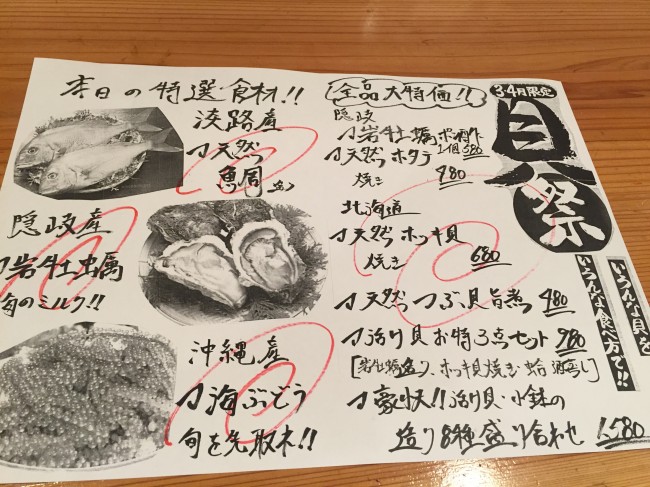 本日の特選食材!!
淡路産
天然
鯛
隠岐産
岩牡蠣
旬のミルク!!
沖縄産
海ぶどう
旬を先取れ!!
全品大特価!!
隠岐
岩牡蠣ポン酢 1個580
天然ホタテ
焼き 480
北海道
天然ホッキ貝
焼き 680
天然つぶ貝旨煮 480
活け貝お得3点セット 980
[岩牡蠣造り、ホッキ貝焼き、蛤酒蒸し]
豪快!!活け貝・小鉢の
造り8種盛り合わせ 1,580
3・4月限定
貝祭
いろんな貝を
いろんな食べ方で!!